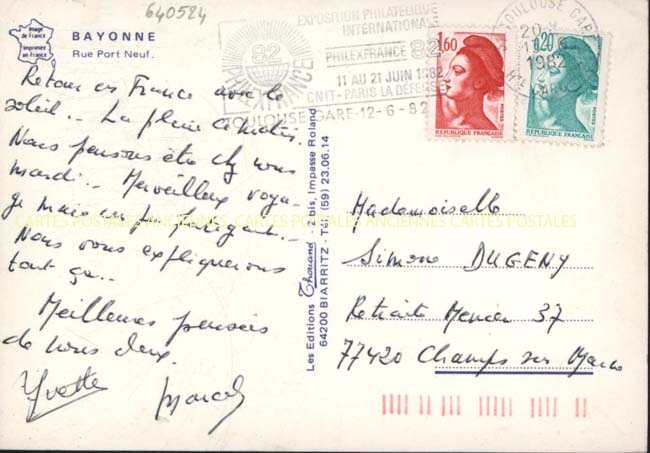 640524
Image
de France
Imprimée
en France
BAYONNE
Rue Port Neuf.
EXPOSITION PHILATELIQUE
INTERNATIONALE
PHILEXFRANCE 82
11 AU 21 JUIN 1982
CNIT-PARIS LA DÉFENSE
TOULOUSE GARE-12-6-82
82
PHILEXFRANCE
TOULOUSE GARE
20
12
1982
Hte GARONNE
1,60
REPUBLIQUE FRANÇAISE
POSTES
0,20
REPUBLIQUE FRANÇAISE
POSTES
Retour en France avec le
soleil.. La pluie ce matin.
Nous pensons être chez vous
mardi.. Merveilleux voya-
ge mais
Nous vous expliquerons
tout ça..
Meilleures pensées
de nous deux.
Yvette Marcel
CARTES POSTALES ANCIENNES CARTES POSTALES ANCIENNES CARTES POSTALES
Les Editions Thouand - 2 bis, Impasse Roland
64200 BIARRITZ - Tél. (59) 23.06.14
Mademoiselle
Simone DUGENY
Retraite Menier 37
77420 Champs sur Marne